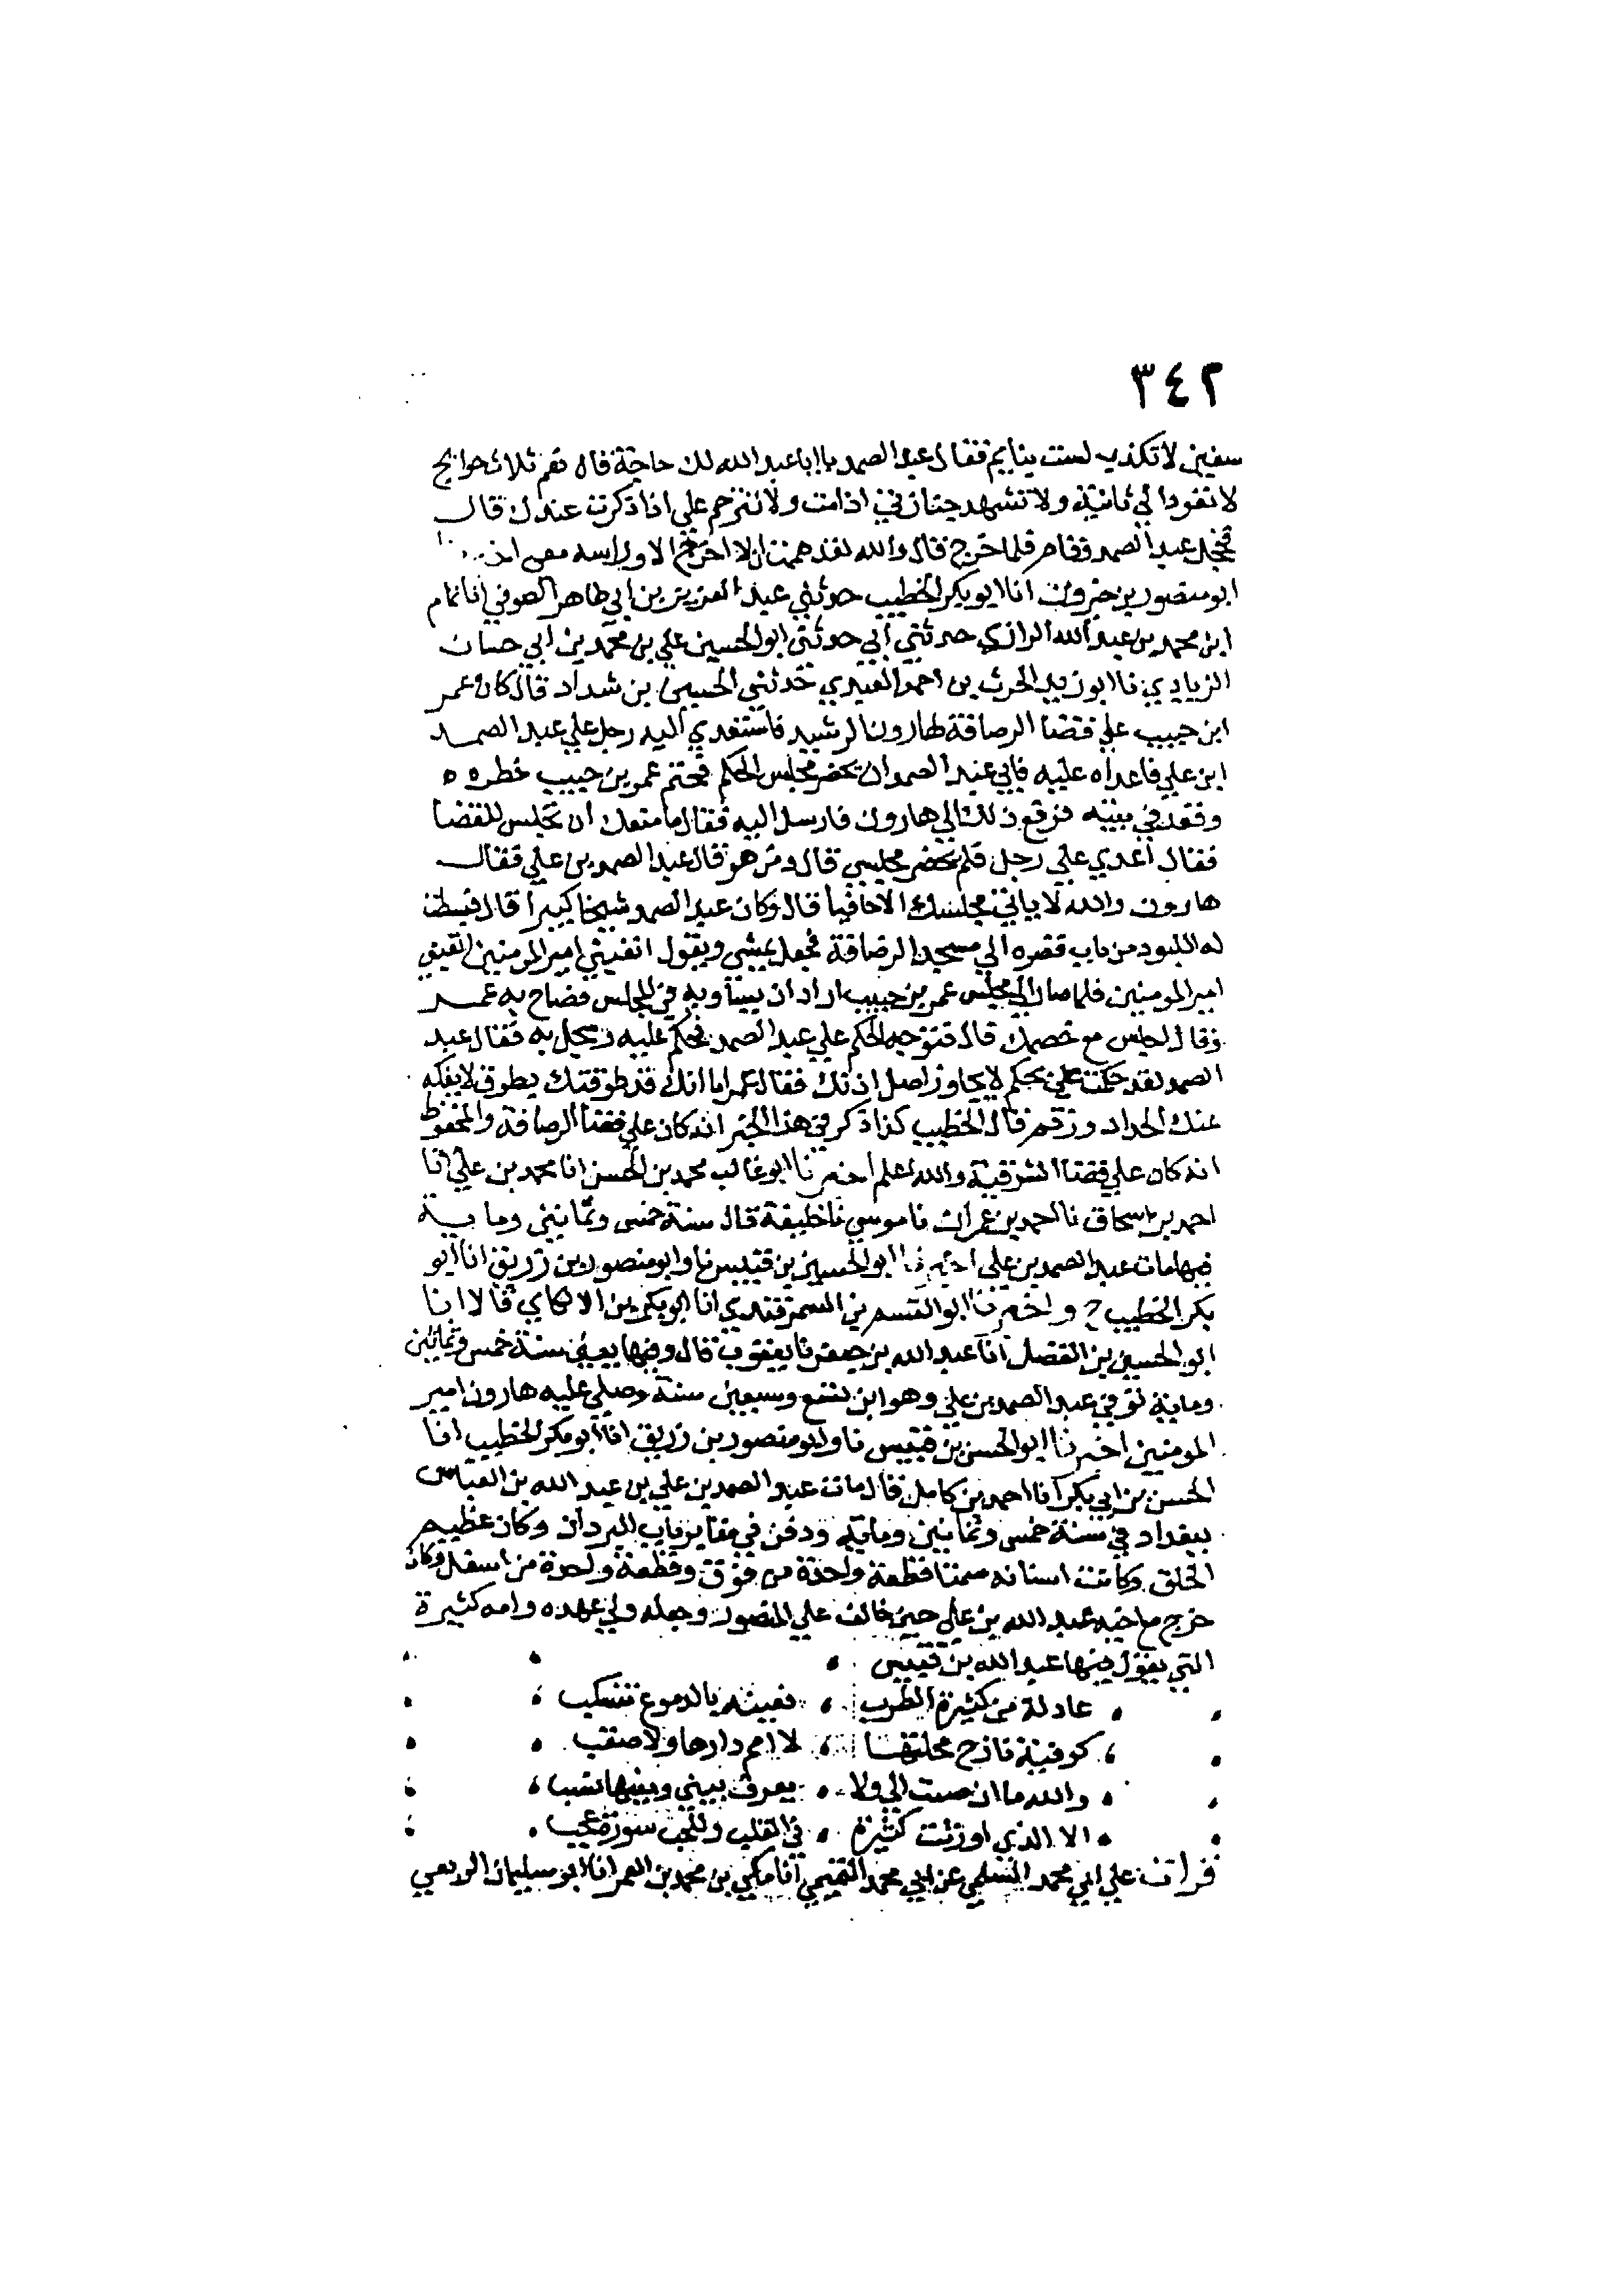 ٣٤٢
سفين لا تكذب لست بنايم فقال عبد الصمد يا ابا عبد الله لك حاجة قال نعم ثلاث حوايج
لا تعودا لي ثانية ولا تشهد جنازتي اذا مت ولا تترحم علي اذا ذكرت عندك قال
فخجل عبد الصمد وقام فلما خرج قال والله لقد هممت ان لا اخرج الا وراسه معي
ابو منصور بن خيرون انا ابو بكر الخطيب حدثني عبد العزيز بن ابي طاهر الصوفي انا تمام
ابن محمد بن عبد الله الرازي حدثني ابي حدثني ابو الحسين علي بن محمد بن ابي حسان
الزيادي نا ابو زيد الحرث بن احمد العبدي حدثني الحسين بن شداد قال كان عمر
ابن حبيب علي قضا الرصافة لهارون الرشيد فاستعدي اليه رجل علي عبد الصمد
ابن علي فاعداه عليه فابي عبد الصمد ان يحضر مجلس الحكم فختم عمر بن حبيب
وقعد في بيته فرفع ذلك الي هارون فارسل اليه فقال ما منعك ان تجلس للقضا
فقال اعدي علي رجل فلم يحضر مجلسي قال ومن هو قال عبد الصمد بن علي فقال
هارون والله لا ياتي مجلسك الا حافيا قال وكان عبد الصمد شيخا كبيرا قال فبسطت
له اللبود من باب قصره الي مسجد الرصافة فجعل يمشي ويقول اتعبني امير المومنين اتعبني
امير المومنين فلما صار الي مجلس عمر بن حبيب اراد ان يساويه في المجلس فصاح به عمر
وقال اجلس مع خصمك قال فتوجه الحكم علي عبد الصمد فحكم عليه وسجل به فقال عبد
الصمد لقد حكمت علي بحكم لا يجاوز اصل اذنك فقال عمر اما انك قد طوقتك بطوق لا يفكه
عنك الحداد وزقم قال الخطيب كذا ذكر في هذا الخبر انه كان علي قضا الرصافة والمحفوظ
انه كان علي قضا الشرقية والله اعلم اخبرنا ابو غالب محمد بن الحسن انا محمد بن علي انا
احمد بن اسحاق نا احمد بن عمران نا موسي نا خليفة قال سنة خمس وثمانين وماية
فيها مات عبد الصمد بن علي اخبرنا ابو الحسين بن قبيس نا وابو منصور بن زريق انا ابو
بكر الخطيب ح واخبرنا ابو القسم بن السمرقندي انا ابو بكر بن الالكاي قالا انا
ابو الحسين بن الفضل انا عبد الله بن جعفر نا يعقوب قال وفيها يعني سنة خمس وثمانين
وماية توفي عبد الصمد بن علي وهو ابن تسع وسبعين سنة وصلي عليه هارون امير
المومنين اخبرنا ابو الحسن بن قبيس نا وابو منصور بن زريق انا ابو بكر الخطيب انا
الحسن بن ابي بكر انا احمد بن كامل قال مات عبد الصمد بن علي بن عبد الله بن العباس
ببغداد في سنة خمس وثمانين وماية ودفن في مقابر باب البردان وكان عظيم
الخلق وكانت اسنانه صمتا قطعة واحدة من فوق وقطعة واحدة من اسفل وكان
خرج مع اخيه عبد الله بن علي حين خالف علي المنصور وجعله ولي عهده وامه كثيرة
التي يقول فيها عبد الله بن قيس
عادله من كثيرة الطرب فعينه بالدموع تنسكب
كوفية نازح محلتها لا امم دارها ولا صقب
والله ما ان صبت الي ولا يعرف بيني وبينها نسب
الا الذي اورثت كثيرة في القلب وللحب سورة عجب
قرات علي ابي محمد السلمي عن ابي محمد التميمي انا مكي بن محمد بن الغمر انا ابو سليمان الربعي